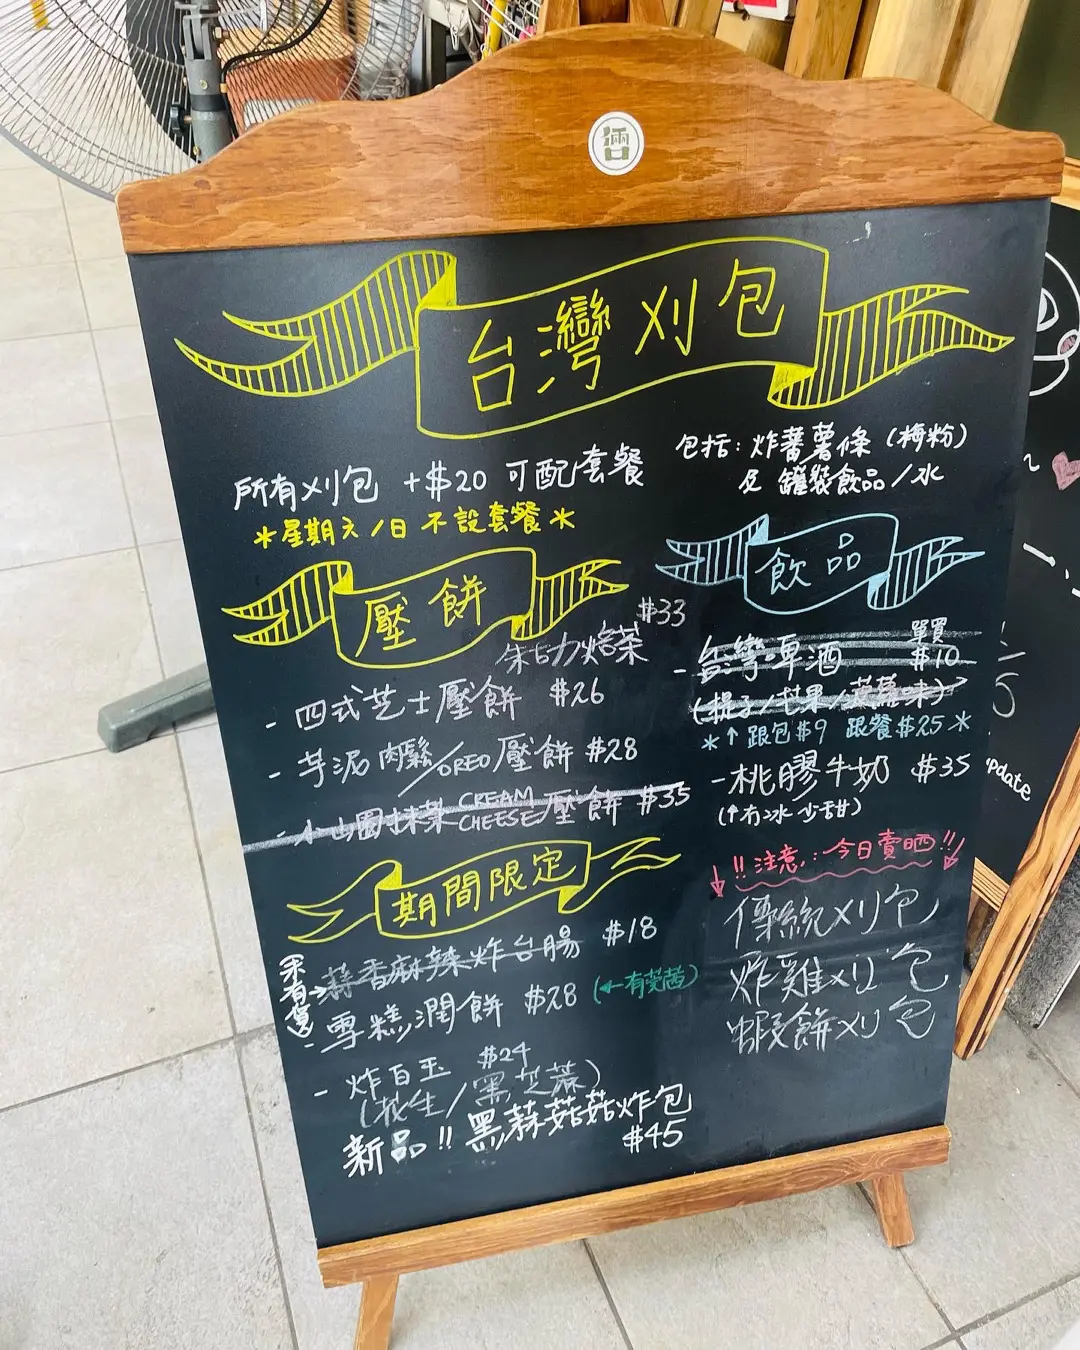 台灣刈包
所有刈包 +$20 可配套餐
包括：炸蕃薯條（梅粉）
及 罐裝飲品/水
*星期六/日 不設套餐*
壓餅
朱古力焙茶 $33
- 四式芝士壓餅 $26
- 芋泥肉鬆/OREO壓餅 $28
- 小山園抹茶 CREAM CHEESE 壓餅 $35
期間限定
(未有貨)→ 蒜香麻辣炸台腸 $18
- 雪糕潤餅 $28 (←有芫茜)
- 炸白玉 $24
(花生/黑芝蔴)
新品!! 黑蒜菇菇炸包
$45
飲品
- 台灣啤酒 單買 $10
(提子/芒果/味)
*↑跟包$9 跟餐$25*
- 桃膠牛奶 $35
(↑冇冰 少甜)
↓!!注意：今日賣晒!!↓
傳統刈包
炸雞刈包
蝦餅刈包
update